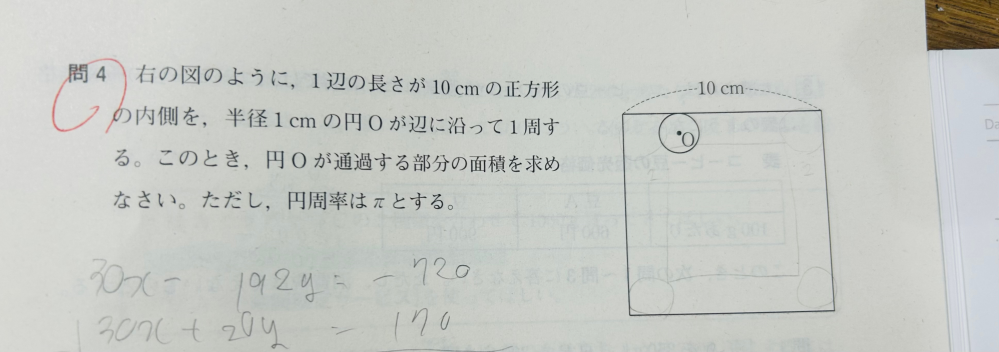 問4 右の図のように，1辺の長さが10cmの正方形
の内側を，半径1cmの円Oが辺に沿って1周す
る。このとき，円Oが通過する部分の面積を求め
なさい。ただし，円周率はπとする。
10cm
O
30x - 192y = -720
130x + 20y = 170